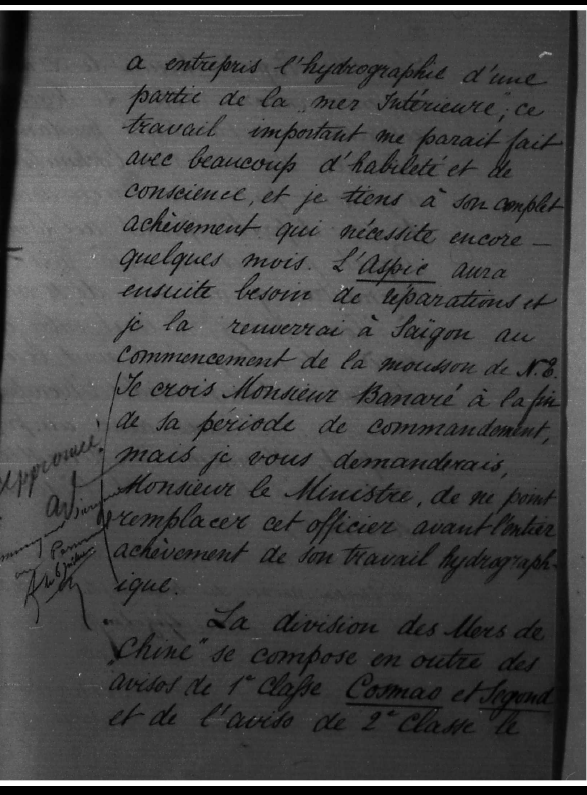 a entrepris l'hydrographie d'une
partie de la "mer Intérieure"; ce
travail important me parait fait
avec beaucoup d'habileté et de
conscience, et je tiens à son complet
achèvement qui nécessite encore –
quelques mois. L'Aspic aura
ensuite besoin de réparations et
je la renverrai à Saïgon au
commencement de la mousson de N.E.
Je crois Monsieur Banaré à la fin
de sa période de commandement,
mais je vous demanderais,
Monsieur le Ministre, de ne point
remplacer cet officier avant l'entier
achèvement de son travail hydrograph-
ique.
La division des Mers de
Chine" se compose en outre des
avisos de 1e classe Cosmao et Segond
et de l'aviso de 2e classe le
approuvé